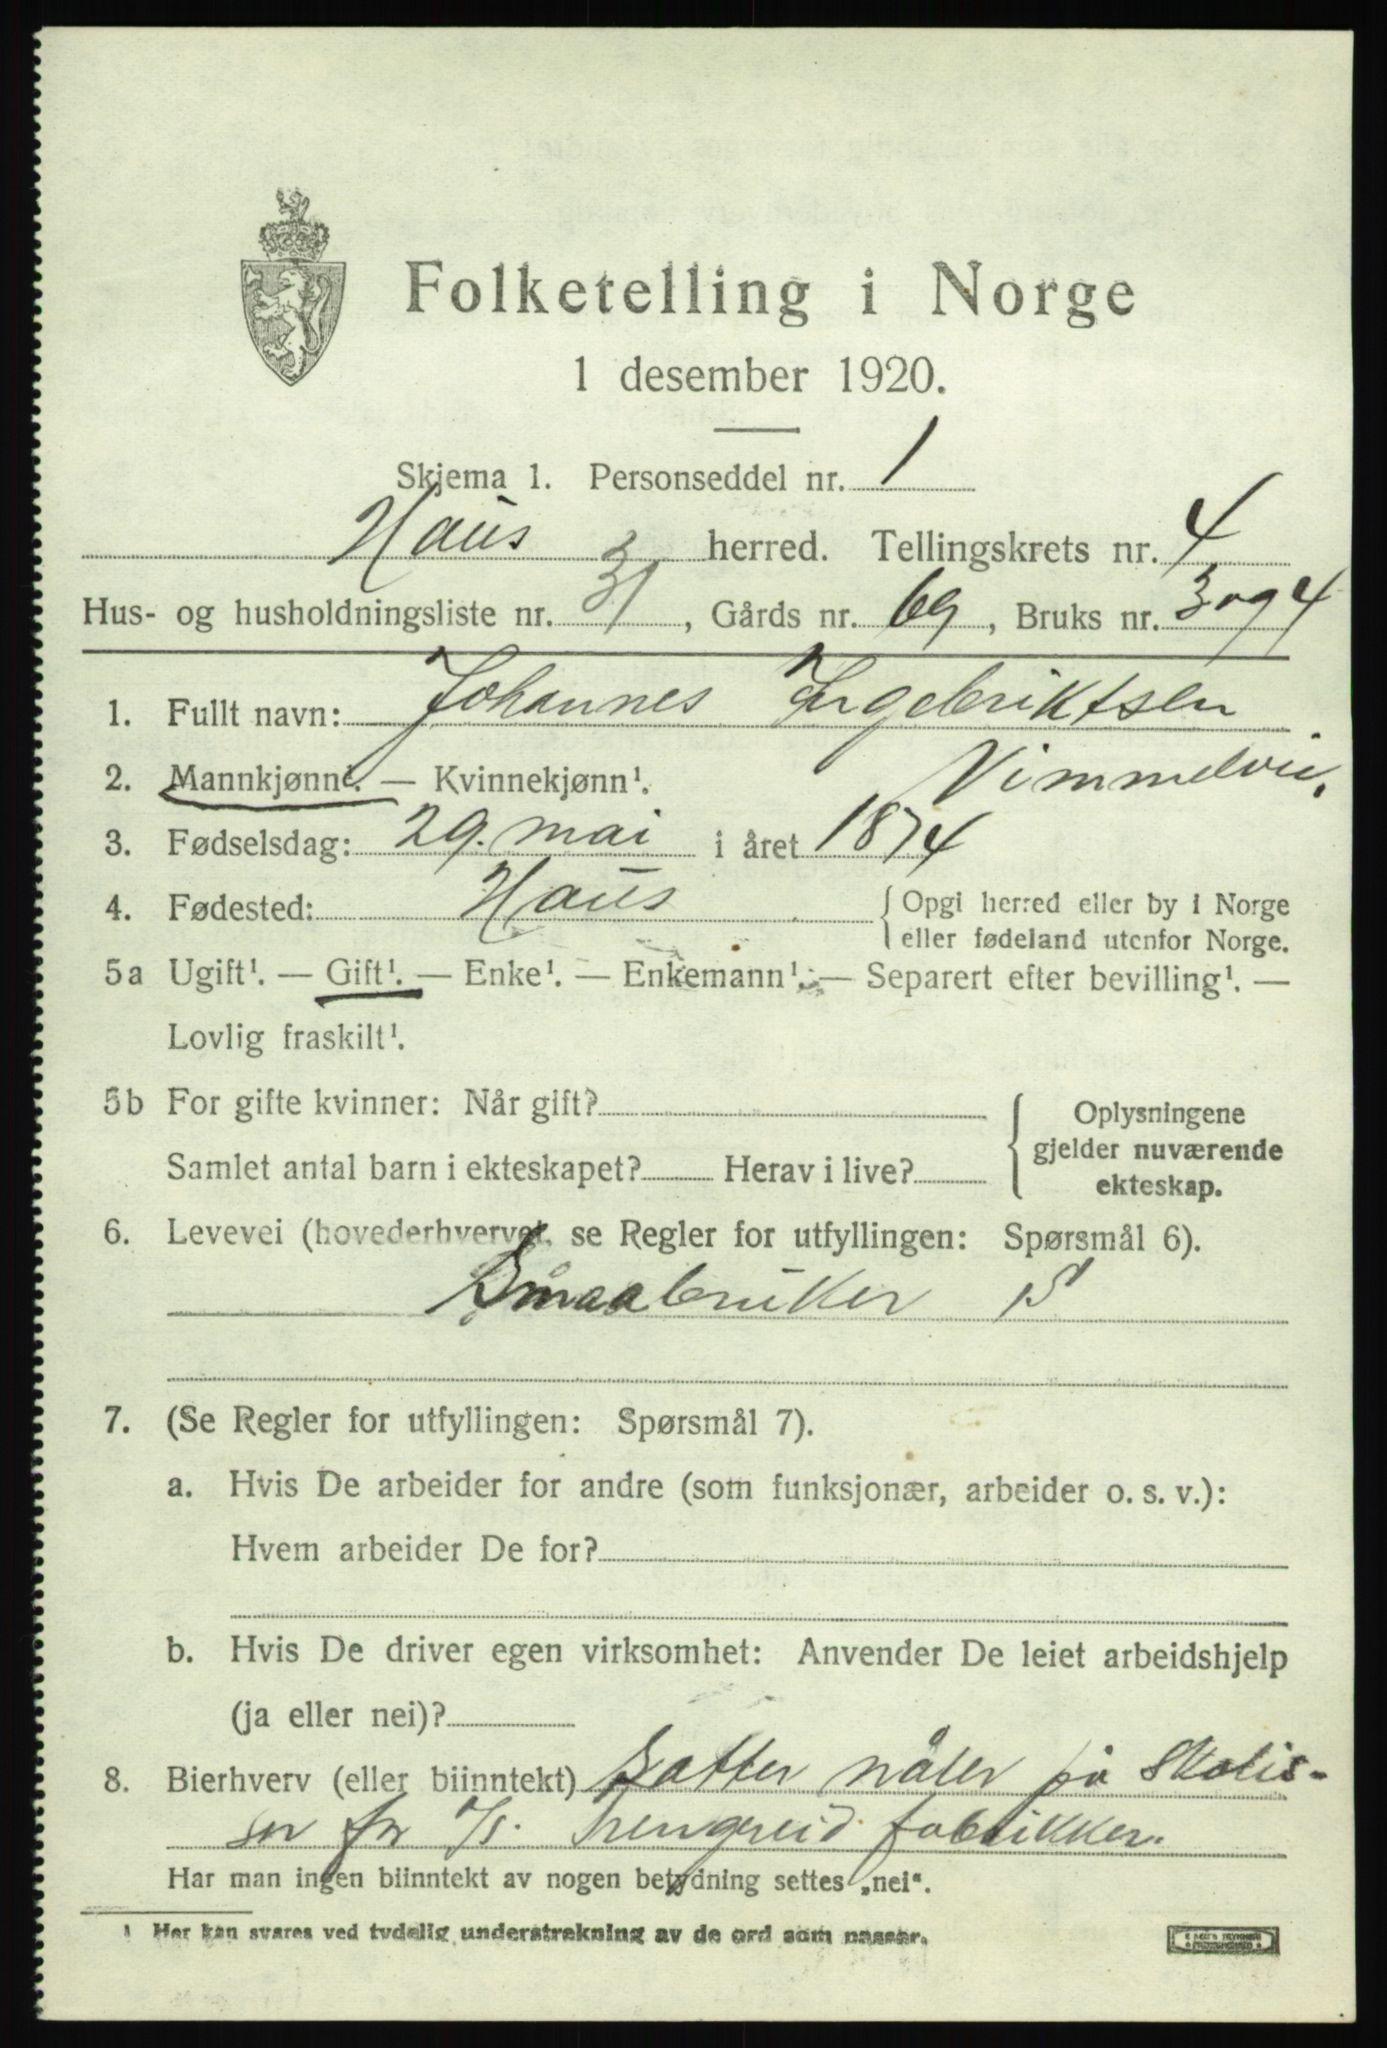 Folketelling i Norge
1 desember 1920.
Skjema 1. Personseddel nr. 1
Haus herred. Tellingskrets nr. 4
Hus- og husholdningsliste nr. 31, Gårds nr. 69, Bruks nr. 3 og 4
1. Fullt navn: Johannes Ingebriktsen
2. Mannkjønn¹. — Kvinnekjønn¹. Vimmelvei.
3. Fødselsdag: 29. mai i året 1874
4. Fødested: Haus { Opgi herred eller by i Norge
eller fødeland utenfor Norge.
5a Ugift¹. — Gift¹. — Enke¹. — Enkemann¹. — Separert efter bevilling¹. —
Lovlig fraskilt¹.
5b For gifte kvinner: Når gift? { Oplysningene
gjelder nuværende
Samlet antal barn i ekteskapet? Herav i live?
ekteskap.
6. Levevei (hovederhvervet, se Regler for utfyllingen: Spørsmål 6).
Småabruker S
7. (Se Regler for utfyllingen: Spørsmål 7).
a. Hvis De arbeider for andre (som funksjonær, arbeider o. s. v.):
Hvem arbeider De for?
b. Hvis De driver egen virksomhet: Anvender De leiet arbeidshjelp
(ja eller nei)?
8. Bierhverv (eller biinntekt) Satter nåler på
for A/S. Trengereid fabrikker.
Har man ingen biinntekt av nogen betydning settes „nei“.
¹ Her kan svares ved tydelig understrekning av de ord som passer.